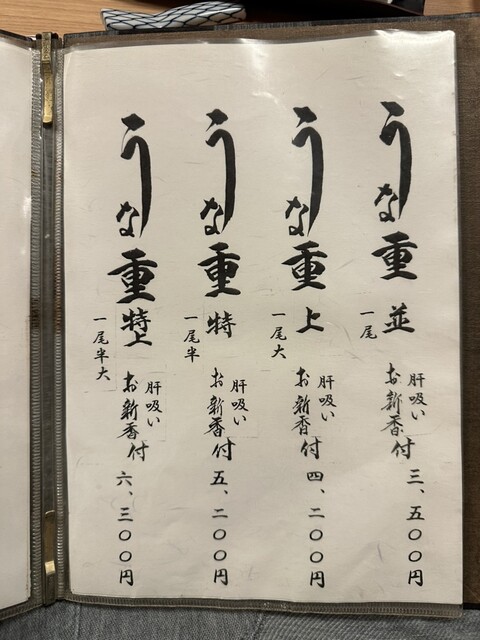 うな重 並
一尾
肝吸い
お新香付
三、五〇〇円
うな重 上
一尾大
肝吸い
お新香付
四、二〇〇円
うな重 特
一尾半
肝吸い
お新香付
五、二〇〇円
うな重 特上
一尾半大
肝吸い
お新香付
六、三〇〇円